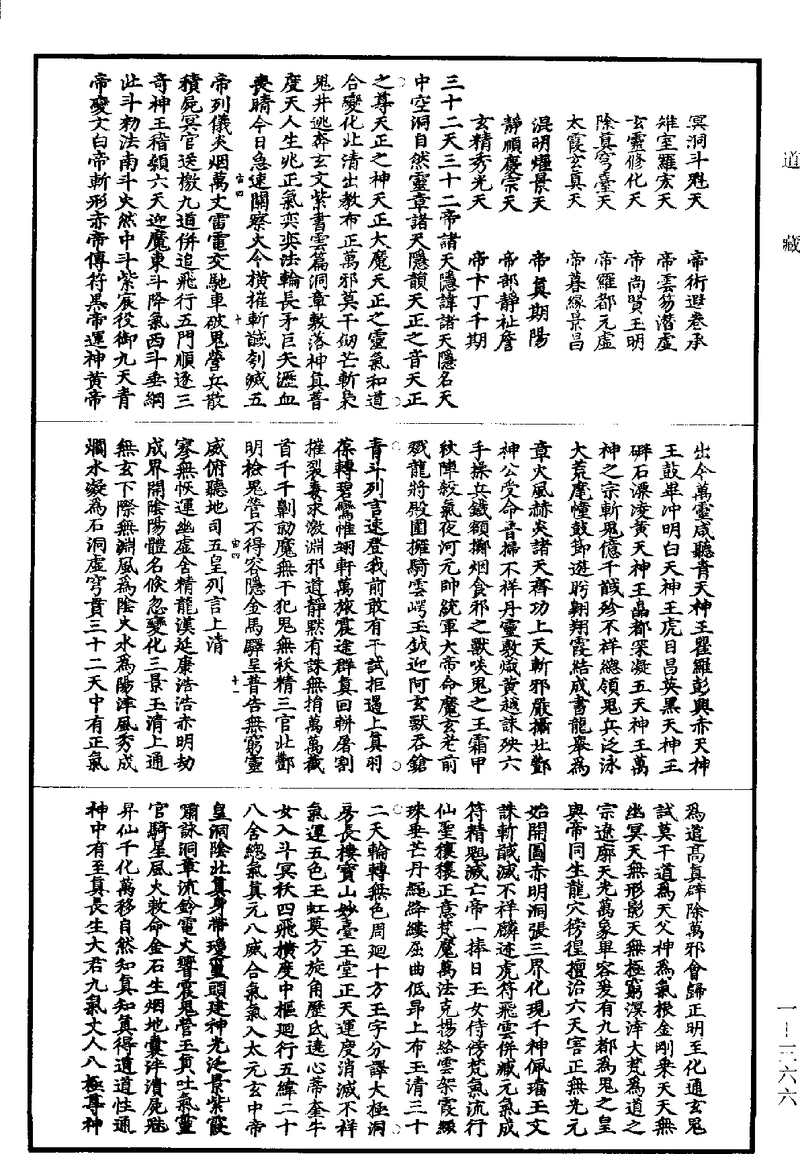 道藏
冥洞斗尅天　帝術逥卷承
雉室羅宏天　帝雲芴潛虛
玄靈修化天　帝尚賢王明
除真穹臺天　帝羅都元虛
太霞玄真天　帝暮緣景昌
混明燿景天　帝真期陽
靜順慶宗天　帝部靜祉詹
玄精秀光天　帝卞丁千期
三十二天三十二帝諸天隱諱諸天隱名天
中空洞自然靈章諸天隱韻天正之音天正
之尊天正之神天正大魔天正之靈氣和道
合變化北清出教布正萬邪莫干刼芒斬梟
鬼井逃奔玄文紫書雲篇洞章敷落神真普
度天人生兆正氣奕奕法輪長矛巨天瀝血
喪睛今日急速關察火令橫摧斬馘刳滅五
帝列儀炎烟萬丈雷電交馳車破鬼營兵散
積屍冥官送檄九道併追飛行五門順逐三
奇神王稽顙六天迎魔東斗降氣西斗垂綱
北斗勑法南斗火然中斗紫宸役御九天青
帝變文白帝斬形赤帝傳符黑帝運神黃帝
出令萬靈咸聽青天神王瞿羅彭輿赤天神
王鼓畢冲明白天神王虎日昌英黑天神王
磚石漂淩黃天神王晶都梁凝五天神王萬
神之宗斬鬼億千馘殄不祥總領鬼兵泛泳
大荒麾幢鼓節遊盻翱翔霞結成書龍舉為
章火風赫炎諸天齊功上天斬邪嚴攝北酆
神公受命普掃不祥丹靈敷熾黃越誅殃六
手操兵鐵額擲烟食邪之獸啖鬼之王霜甲
秋陣殺氣夜河元帥統軍大帝命魔玄老前
殱龍將殿圍擁騎雲崿玉鉞迎阿玄獸吞鎗
青斗列言速登我前敢有干試拒遏上真羽
葆轉碧鸞帷翊軒萬旅震途群真回軿屠割
摧裂毒求激淵邪道靜默有誅無捎萬萬截
首千千剿勍魔無干犯鬼無袄精三官北酆
明檢鬼營不得容隱金馬驛呈普告無窮靈
威俯聽地司五皇列言上清
寥無恢運幽虛含精龍漢延康浩浩赤明劫
成界開陰陽體名倏忽變化三景玉清上通
無玄下際無淵風為陰火水為陽滓風秀成
爛水凝為石洞虛穹貫三十二天中有正氣
為道高真碎除萬邪會歸正明至化通玄鬼
試莫干道為天父神為氣楸金剛乗天天無
幽冥天無形影天無極窮溟滓大梵為道之
宗遼廓天光萬象畢容爰有九都為鬼之皇
與帝同生龍穴徬徨擅治六天害正無光元
始開圖赤明洞張三界化現千神佩璫玉文
誅斬馘滅不祥麟迹虎符飛雲併臧元氣成
符精鬼滅亡帝一捧日玉女侍傍梵氣流行
仙聖穰穰正意梵魔萬法克揚絡雲架霞緱
珠垂芒丹繩絳縷屈曲低昂上布玉清三十
二天輪轉無色周廻十方王字分譯大極洞
房長樓寶山妙臺玉堂正天運度消滅不祥
氣運五色王虹莫方旋角歷氐遶心蒂奎牛
女入斗冥秋四飛橫度中樞廻行五緯二十
八舍總氣真元八威合氣氣入太元玄中帝
皇洞陰北真身帶瓊璽頭建神光泛景紫霞
簫詠洞章流鈴電火響震鬼營玉真吐氣靈
官騎星風火救命金石生烟地囊滓潰屍魅
昇仙千化萬移自然知真知真得道道性通
神中有至真長生大君九氣丈人八極尊神
吉四
十
吉四
十一
一—三六六